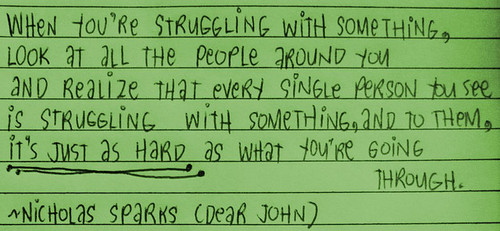 WHEN YOU'RE STRUGGLING WITH SOMETHING,
LOOK AT ALL THE PEOPLE AROUND YOU
AND REALIZE THAT EVERY SINGLE PERSON YOU SEE
iS STRUGGLING WITH SOMETHING, AND TO THEM,
iT'S JUST AS HARD AS WHAT YOU'RE GOING
THROUGH.
~NICHOLAS SPARKS (DEAR JOHN)